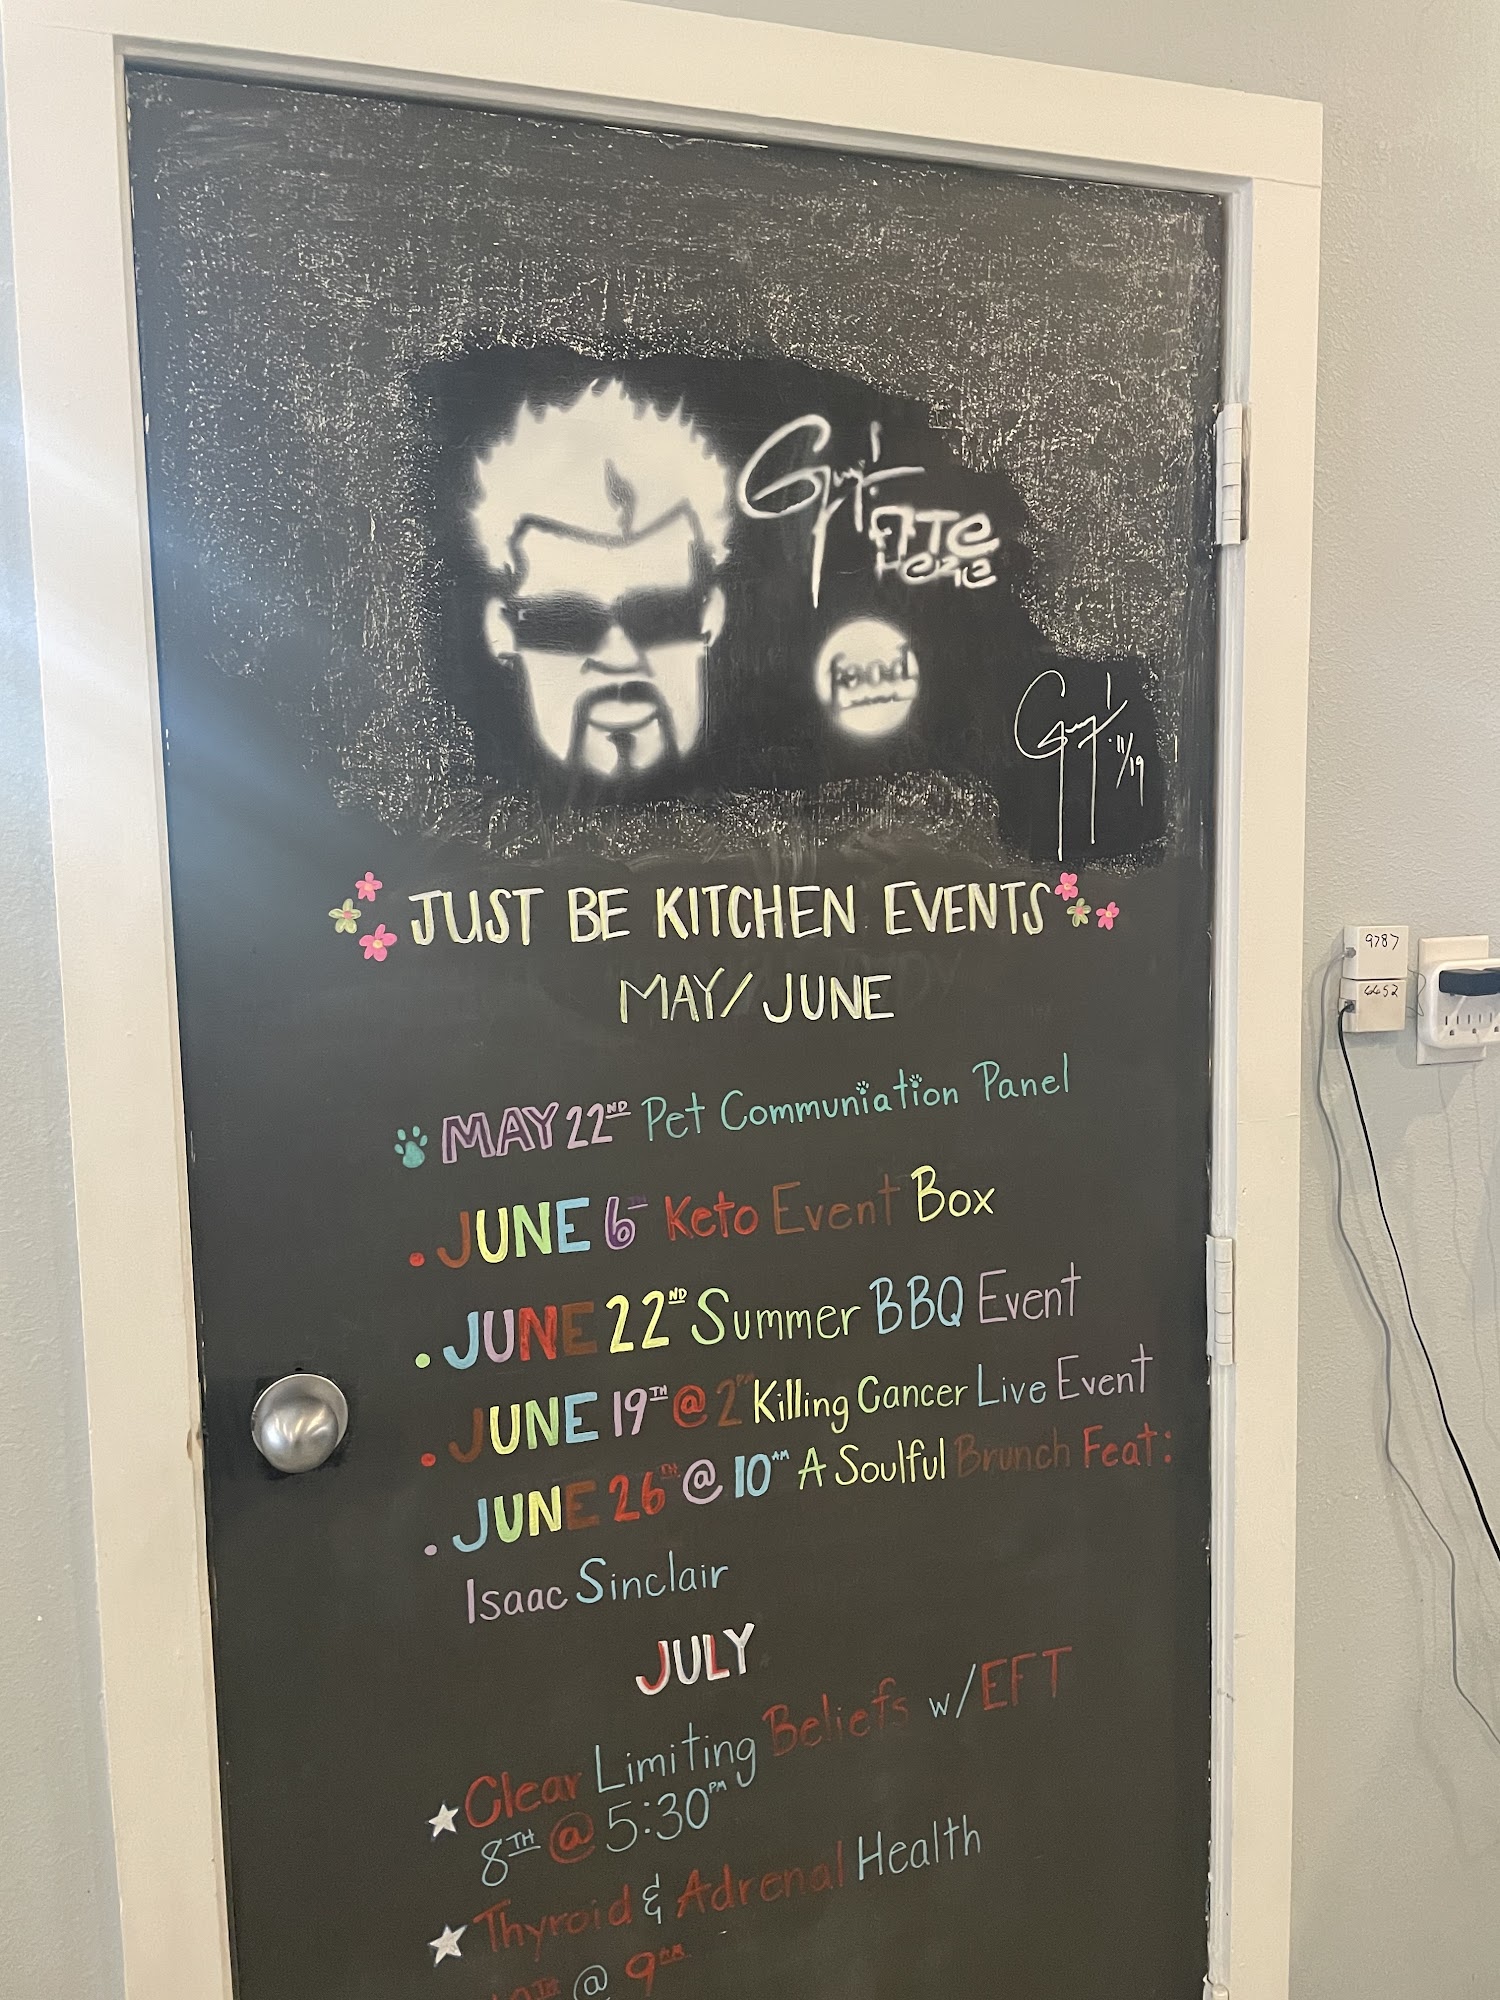 Guy!
ATE
HERE
food
Guy! 11/19
JUST BE KITCHEN EVENTS
MAY/JUNE
MAY 22ND Pet Communiation Panel
JUNE 6TH Keto Event Box
JUNE 22ND Summer BBQ Event
JUNE 19TH @ 2PM Killing Cancer Live Event
JUNE 26TH @ 10AM A Soulful Brunch Feat:
Isaac Sinclair
JULY
Clear Limiting Beliefs w/EFT
8TH @ 5:30PM
Thyroid & Adrenal Health
@ 9AM
9787
4452